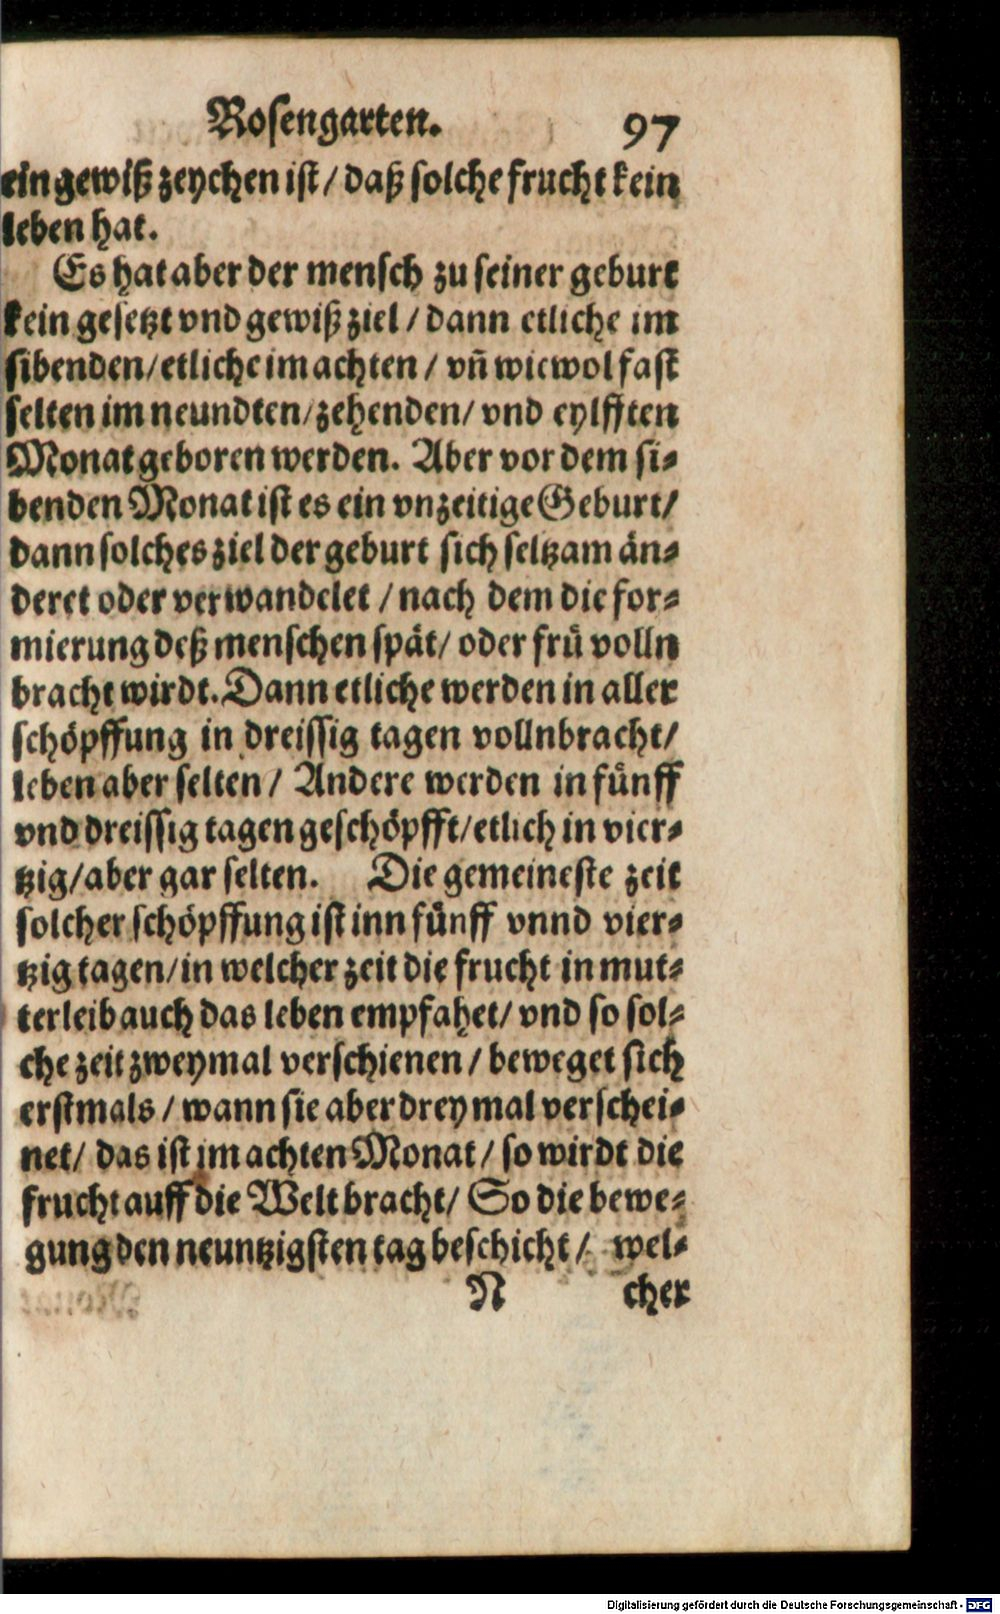 Rosengarten. 97
ein gewiß zeychen ist / daß solche frucht kein
leben hat.
Es hat aber der mensch zu seiner geburt
kein gesetzt vnd gewiß ziel / dann etliche im
sibenden / etliche im achten / vñ wiewol fast
selten im neundten / zehenden / vnd eylfften
Monat geboren werden. Aber vor dem si⸗
benden Monat ist es ein vnzeitige Geburt /
dann solches ziel der geburt sich seltzam än⸗
deret oder verwandelet / nach dem die for⸗
mierung deß menschen spät / oder frü volln
bracht wirdt. Dann etliche werden in aller
schöpffung in dreissig tagen vollnbracht /
leben aber selten / Andere werden in fünff
vnd dreissig tagen geschöpfft / etlich in vier⸗
tzig / aber gar selten. Die gemeineste zeit
solcher schöpffung ist inn fünff vnnd vier⸗
tzig tagen / in welcher zeit die frucht in mut⸗
terleib auch das leben empfahet / vnd so sol⸗
che zeit zweymal verschienen / beweget sich
erstmals / wann sie aber drey mal verschei⸗
net / das ist im achten Monat / so wirdt die
frucht auff die Welt bracht / So die bewe⸗
gung den neuntzigsten tag beschicht / wel⸗
N cher
Digitalisierung gefördert durch die Deutsche Forschungsgemeinschaft - DFG